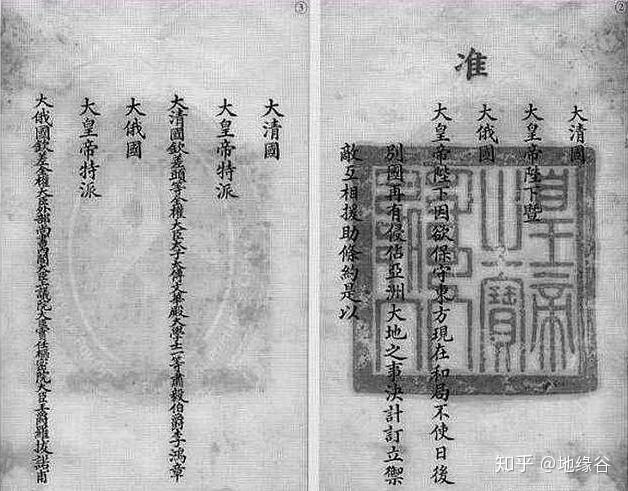 ②
准
大清國
大皇帝陛下暨
大俄國
大皇帝陛下因欲保守東方現在和局不使日後
別國再有侵佔亞洲大地之事決計訂立禦
敵互相援助條約是以
皇帝
之寶
③
大清國
大皇帝特派
大清國欽差頭等全權大臣太子太傅文華殿大學士一等肅毅伯爵李鴻章
大俄國
大皇帝特派
大俄國欽差全權大臣外部尚書內閣大臣上議院大臣實任樞密院大臣王爵羅拔諾甫
知乎 @地缘谷